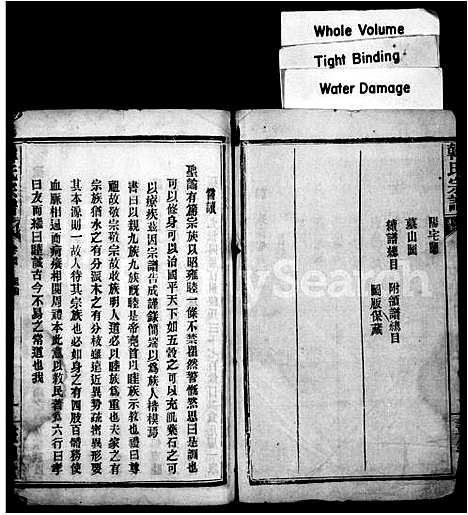 Whole Volume
Tight Binding
Water Damage
陽宅圖
墓山圖
續譜總目 附演譜總目
圖版保藏
聖諭有篤宗族以昭雍睦一條不禁瞿然慨然思曰是訓也
可以修身可以治國平天下如五穀之可以充飢藥石之可
以療疾茲因宗譜告成謹錄簡端以為族人楷模焉
書曰以親九族九族既睦是帝堯首以睦族示教也禮曰尊
祖故敬宗敬宗故收族明人道必以睦族為重也夫家之有
宗族猶水之有分派木之有分枝雖遠近異勢疏密異形要
其本源則一故人待其宗族也必如身之有四肢百體務使
血脈相通而疴癢相關周禮本此意以教民著為六行曰孝
曰友而繼曰睦誠古今不易之常道也我